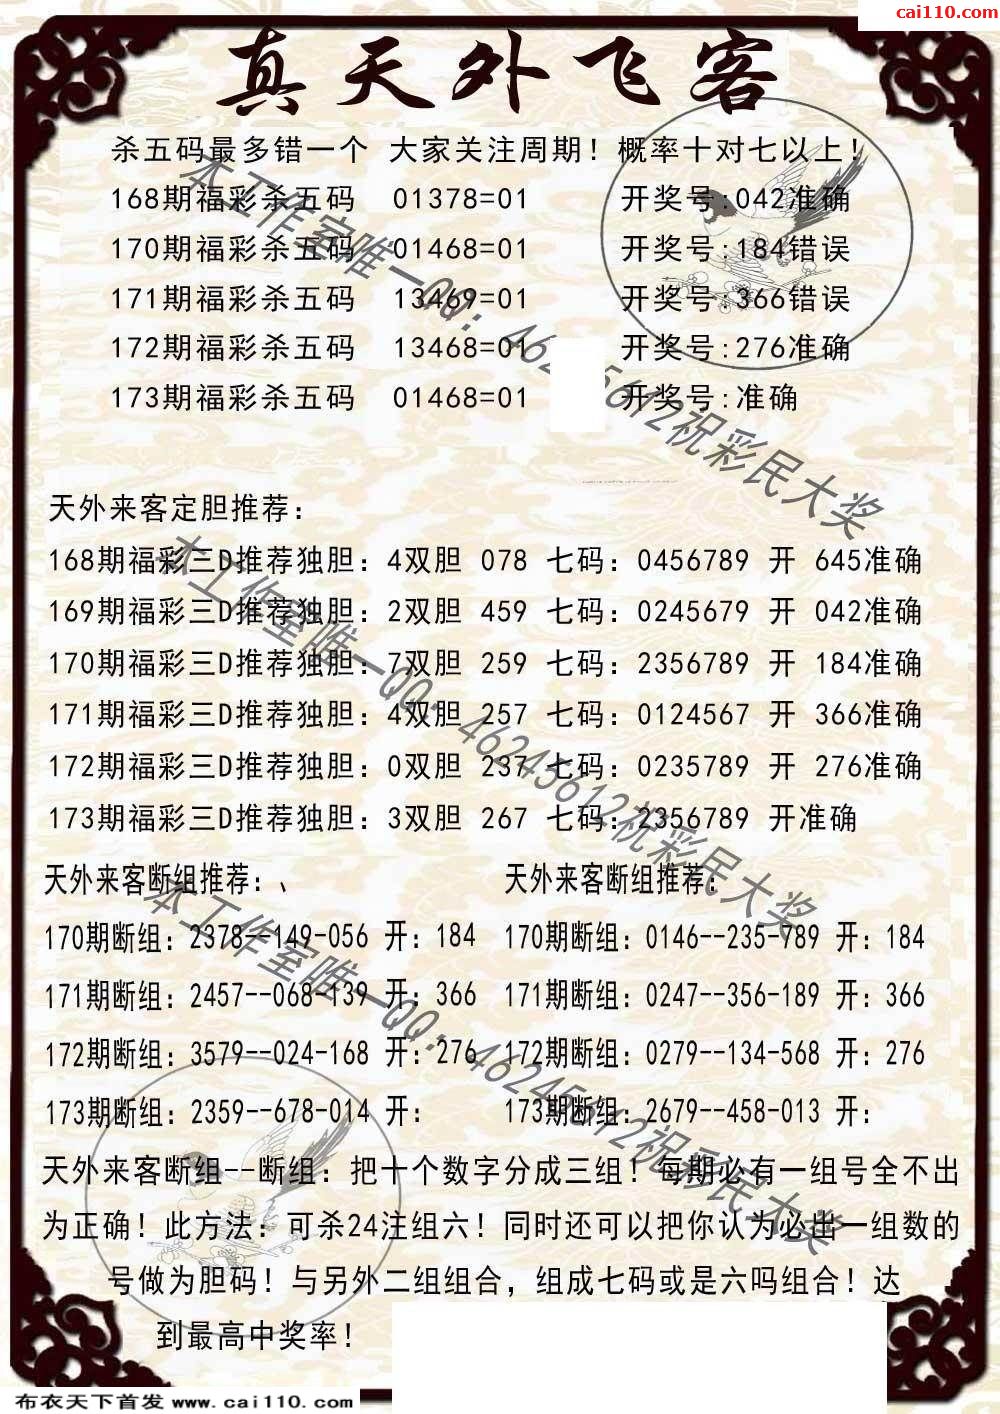 cai110.com
真天外飞客
杀五码最多错一个 大家关注周期！概率十对七以上！
168期福彩杀五码 01378=01 开奖号:042准确
170期福彩杀五码 01468=01 开奖号:184错误
171期福彩杀五码 13469=01 开奖号:366错误
172期福彩杀五码 13468=01 开奖号:276准确
173期福彩杀五码 01468=01 开奖号:准确
本工作室唯一QQ：46245612祝彩民大奖
天外来客定胆推荐：
168期福彩三D推荐独胆：4双胆 078 七码：0456789 开 645准确
169期福彩三D推荐独胆：2双胆 459 七码：0245679 开 042准确
170期福彩三D推荐独胆：7双胆 259 七码：2356789 开 184准确
171期福彩三D推荐独胆：4双胆 257 七码：0124567 开 366准确
172期福彩三D推荐独胆：0双胆 237 七码：0235789 开 276准确
173期福彩三D推荐独胆：3双胆 267 七码：2356789 开准确
本工作室唯一QQ：46245612祝彩民大奖
天外来客断组推荐：、 天外来客断组推荐：
170期断组：2378--149-056 开：184 170期断组：0146--235-789 开：184
171期断组：2457--068-139 开：366 171期断组：0247--356-189 开：366
172期断组：3579--024-168 开：276 172期断组：0279--134-568 开：276
173期断组：2359--678-014 开： 173期断组：2679--458-013 开：
本工作室唯一QQ：46245612祝彩民大奖
天外来客断组--断组：把十个数字分成三组！每期必有一组号全不出
为正确！此方法：可杀24注组六！同时还可以把你认为必出一组数的
号做为胆码！与另外二组组合，组成七码或是六吗组合！达
到最高中奖率！
布衣天下首发 www.cai110.com